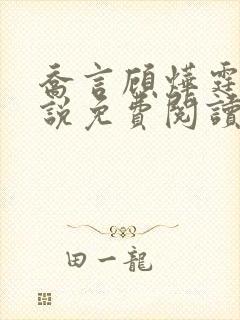 喬言顧燁霆
說免費閱讀
田一龍